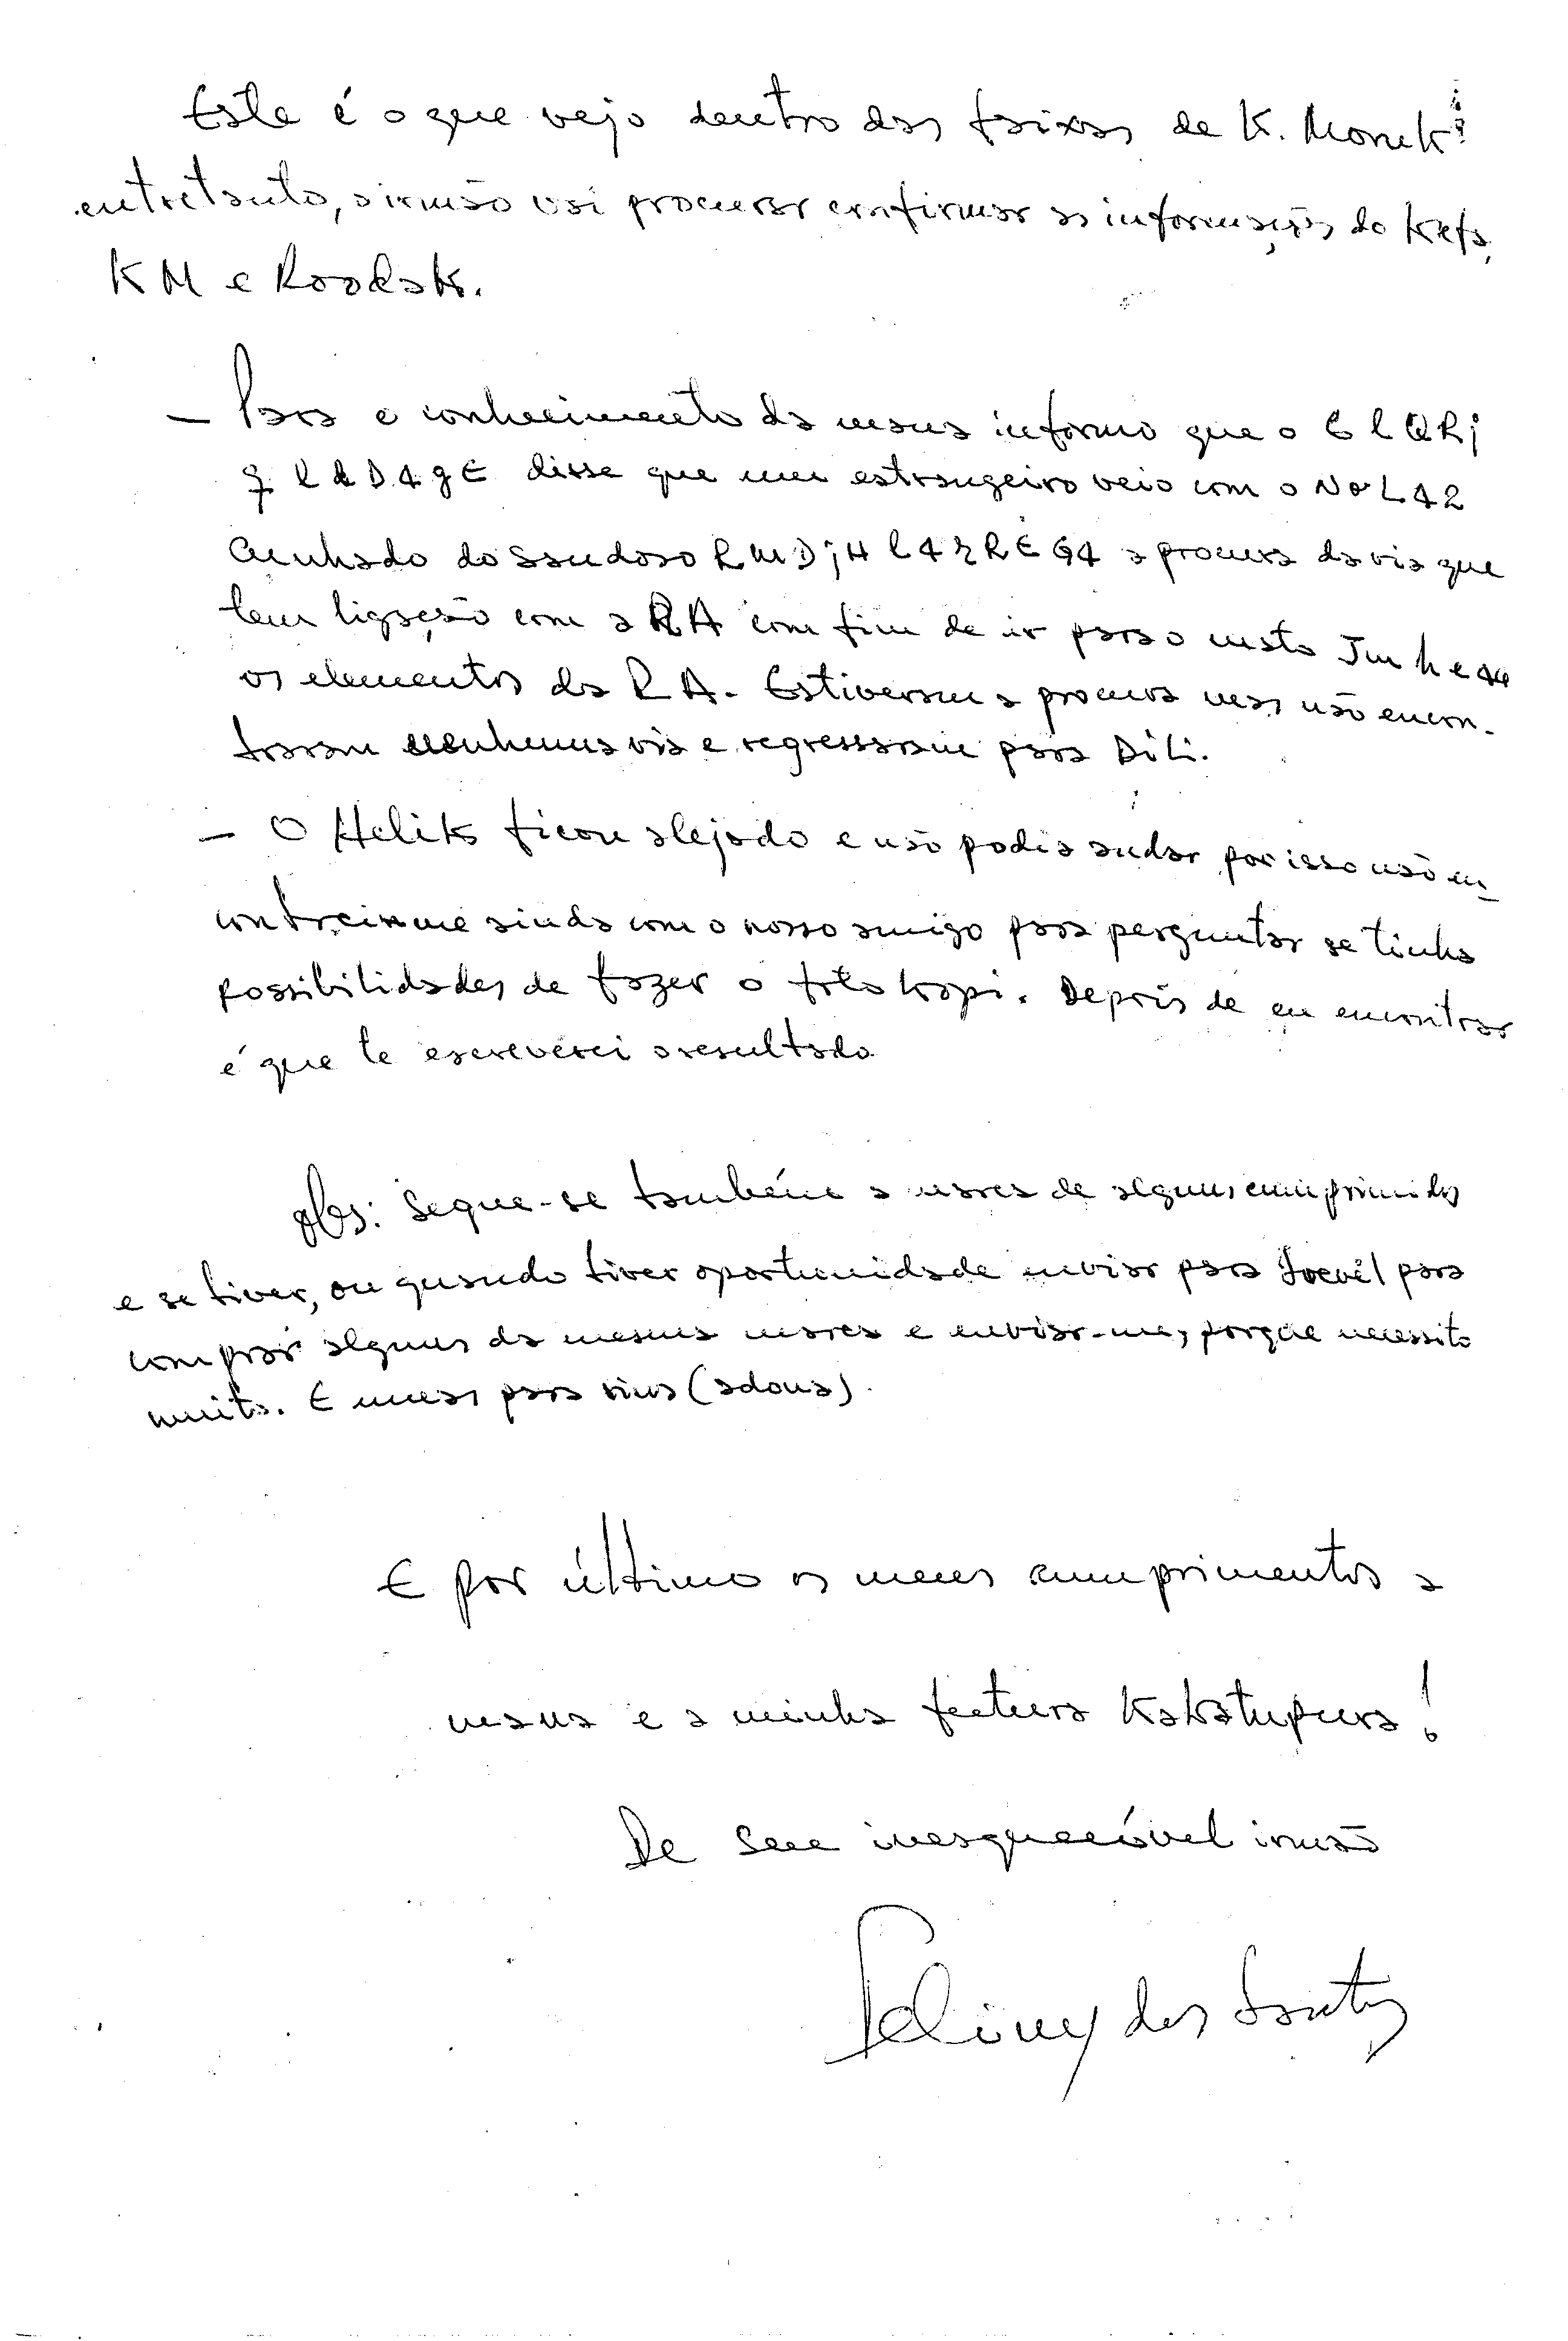 Este é o que vejo dentro das faixas de K. Monuk
entretanto, o irmão vai procurar confirmar as informações do Kefa,
KM e Roodak.
- Para o conhecimento da mana informo que o
disse que um estrangeiro veio com o
cunhado do saudoso a procura da via que
tem ligação com a RA com fim de ir para o mato
os elementos da RA. Estiveram a procura mas não encon-
traram nenhuma via e regressaram para Dili.
- O Helik ficou alejado e não podia andar por isso não en-
contrei-me ainda com o nosso amigo para perguntar se tinha
possibilidades de fazer o fotokopi. Depois de eu encontrar
é que te escreverei o resultado.
Obs: Segue-se também a marca de alguns comprimidos
e se tiver, ou quando tiver oportunidade enviar para para
comprar alguns da mesma marca e enviar-me, porque necessito
muito. E mais para rins (adona).
E por último os meus cumprimentos a
mana e a minha futura Kakatupura!
De seu inesquecível irmão
dos Santos